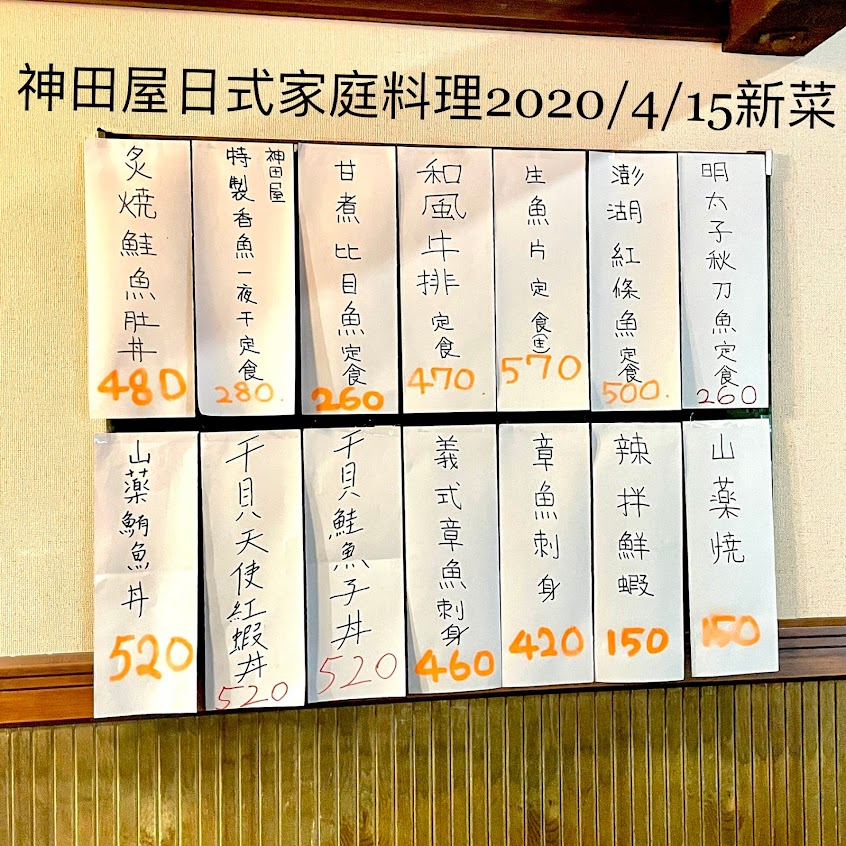 神田屋日式家庭料理2020/4/15新菜
明太子秋刀魚定食
260
澎湖紅條魚定食
500.
生魚片定食
570
和風牛排定食
470
甘煮比目魚定食
260
神田屋
特製香魚一夜干定食
280.
炙燒鮭魚肚丼
480
山藥燒
150
辣拌鮮蝦
150
章魚刺身
420
義式章魚刺身
460
干貝鮭魚子丼
520
干貝天使紅蝦丼
520
山藥鮪魚丼
520